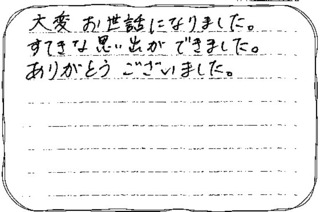 大変 お世話になりました。
すてきな思い出が できました。
ありがとう ございました。